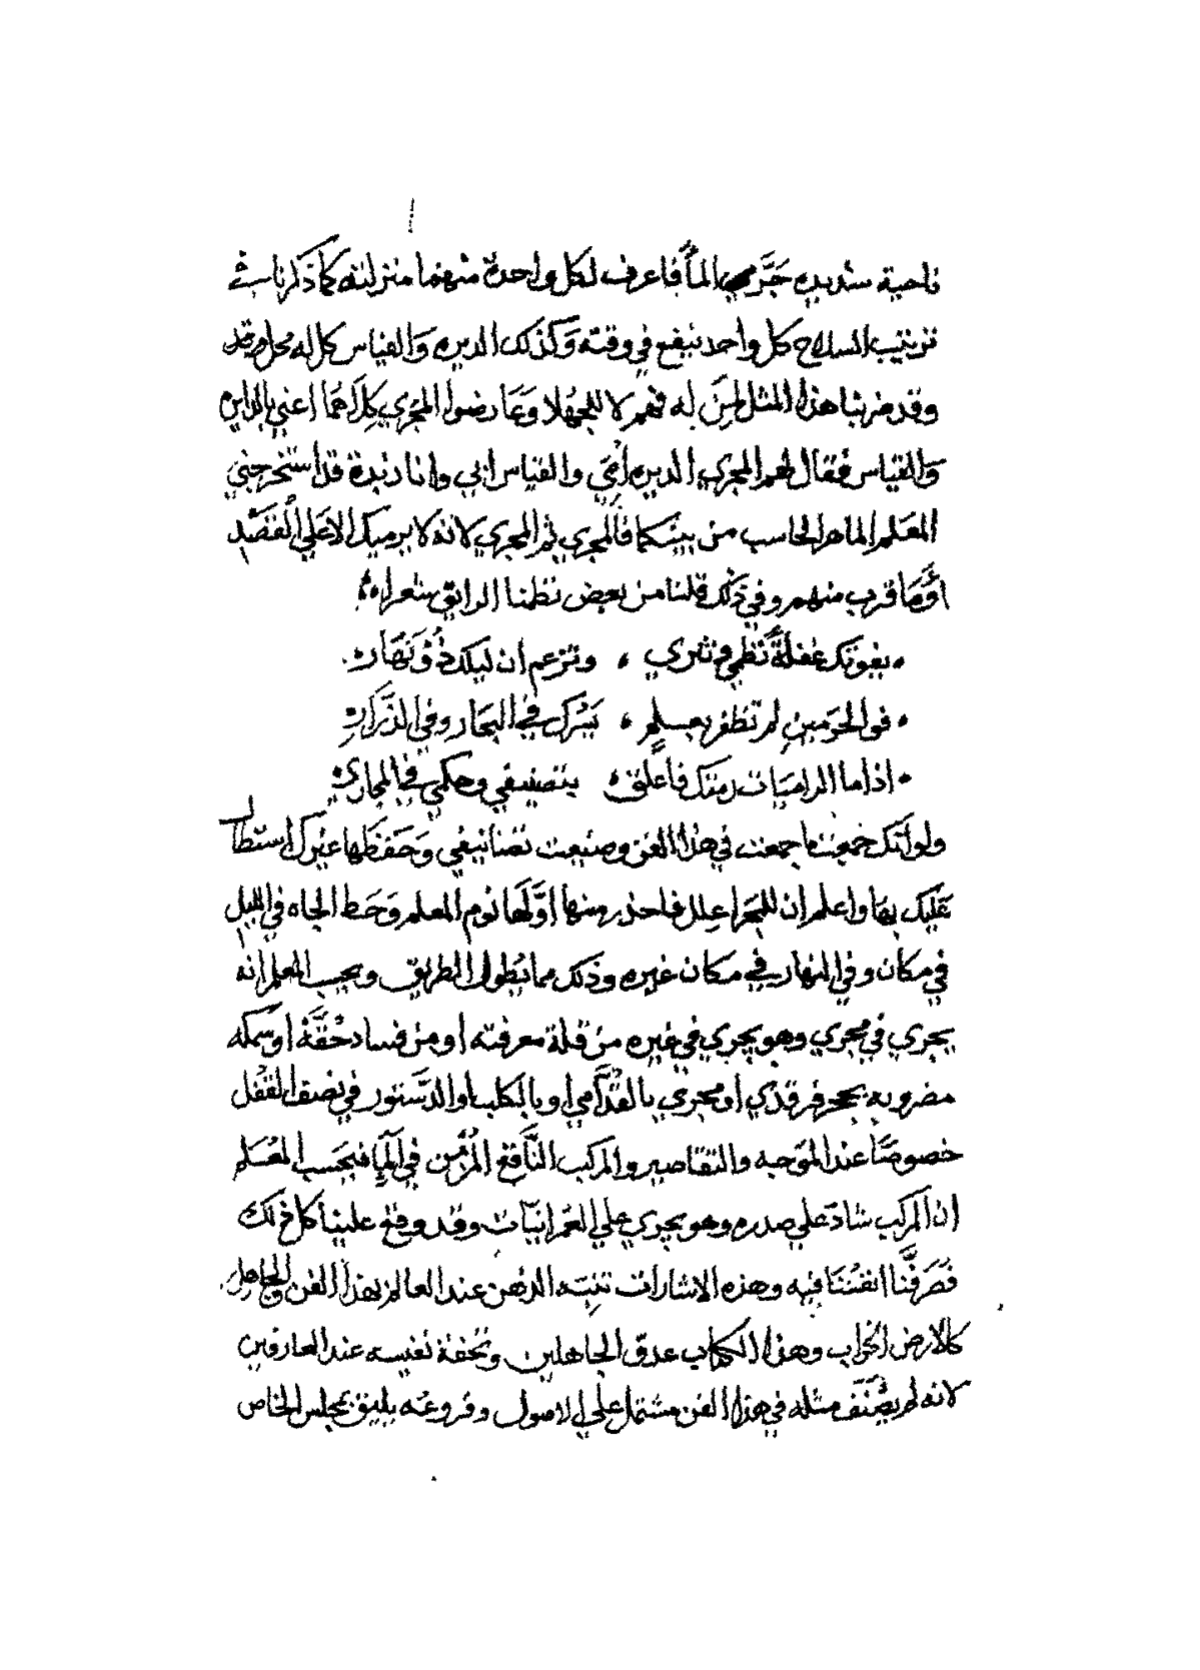 ناحية شديده جَرِي المأ فاعرف لكل واحدة منهما منزلته كما ذكرنا في
ترتيب السلاح كل واحد ينفع في وقته وَكذلك الديره وَالقياس كل له محل وقد
وقد ضربنا هذا المثل لمن له فهم لا للجهلا وَعَارضوا المجري كِلَاهُمَا اعني بالدايره
وَالقياس فقال لهم المجري الديره اُمّي والقياس ابي وانا زبدة قد استخرجني
المعَلم الماهر الحاسب من بينكما فالمجري ثم المجري لانه لا يرميك الا عَلي القَصْد
أوْ مَا قرب منهم وفي ذلك قلنا من بعض نظمنا الرايق شعرا
يفوتك غفلةً نظمي ونثري ، وتزعم ان ليلكَ ذُو نَهَار
فو الحرَمين لم تظفر بعسلم ، يَسُرك في البحار وفي الذَّرَارِ
اذا ما الراميَات رمتك فاعلق ، بتصنيفي وحكمي في المجاري
ولو انّك جمعت ما جمعت في هذا الفن وضيعت تصانيفي وَحَفظها غيرك استطال
عَليك بها واعلم ان للمجرا عِلل فاحذر منها اوَّلها نوم المعلم وَحَط الجاه في الليل
في مكان وفي النهار في مكان غيره وذلك مما يُطول الطريق ويحسب المعلم انه
يجري في مجري وهو يجري في غيره من قلة معرفته او من فساد حُقّةْ او سمكه
مضروبه بحجر فرقدي او مجري بالقدّامي او بالكلب او الدَّستور في نصف القفل
خصوصًا عند الموَجه والتقاصير والمركب النَّاقع المُزْمن في الما فيحَسب المعُلم
ان المركب شادّ علي صدره وهو يجري علي العَمرانيّات وقد وقع علينا كل ذلك
فصَرفْنا انفسُنَا فيه وهذه الاشارات تنبّه الذهن عند العالم بهذا الفن والجاهل
كالارض الخراب وهذا الكتاب عدوّ الجاهلين وتُحْفة نفيسه عند العارفين
لانه لم يُصَنَّف مثله في هذا الفن مشتمل عَلي الاصول وفروعُه يليق بمجلس الخاص